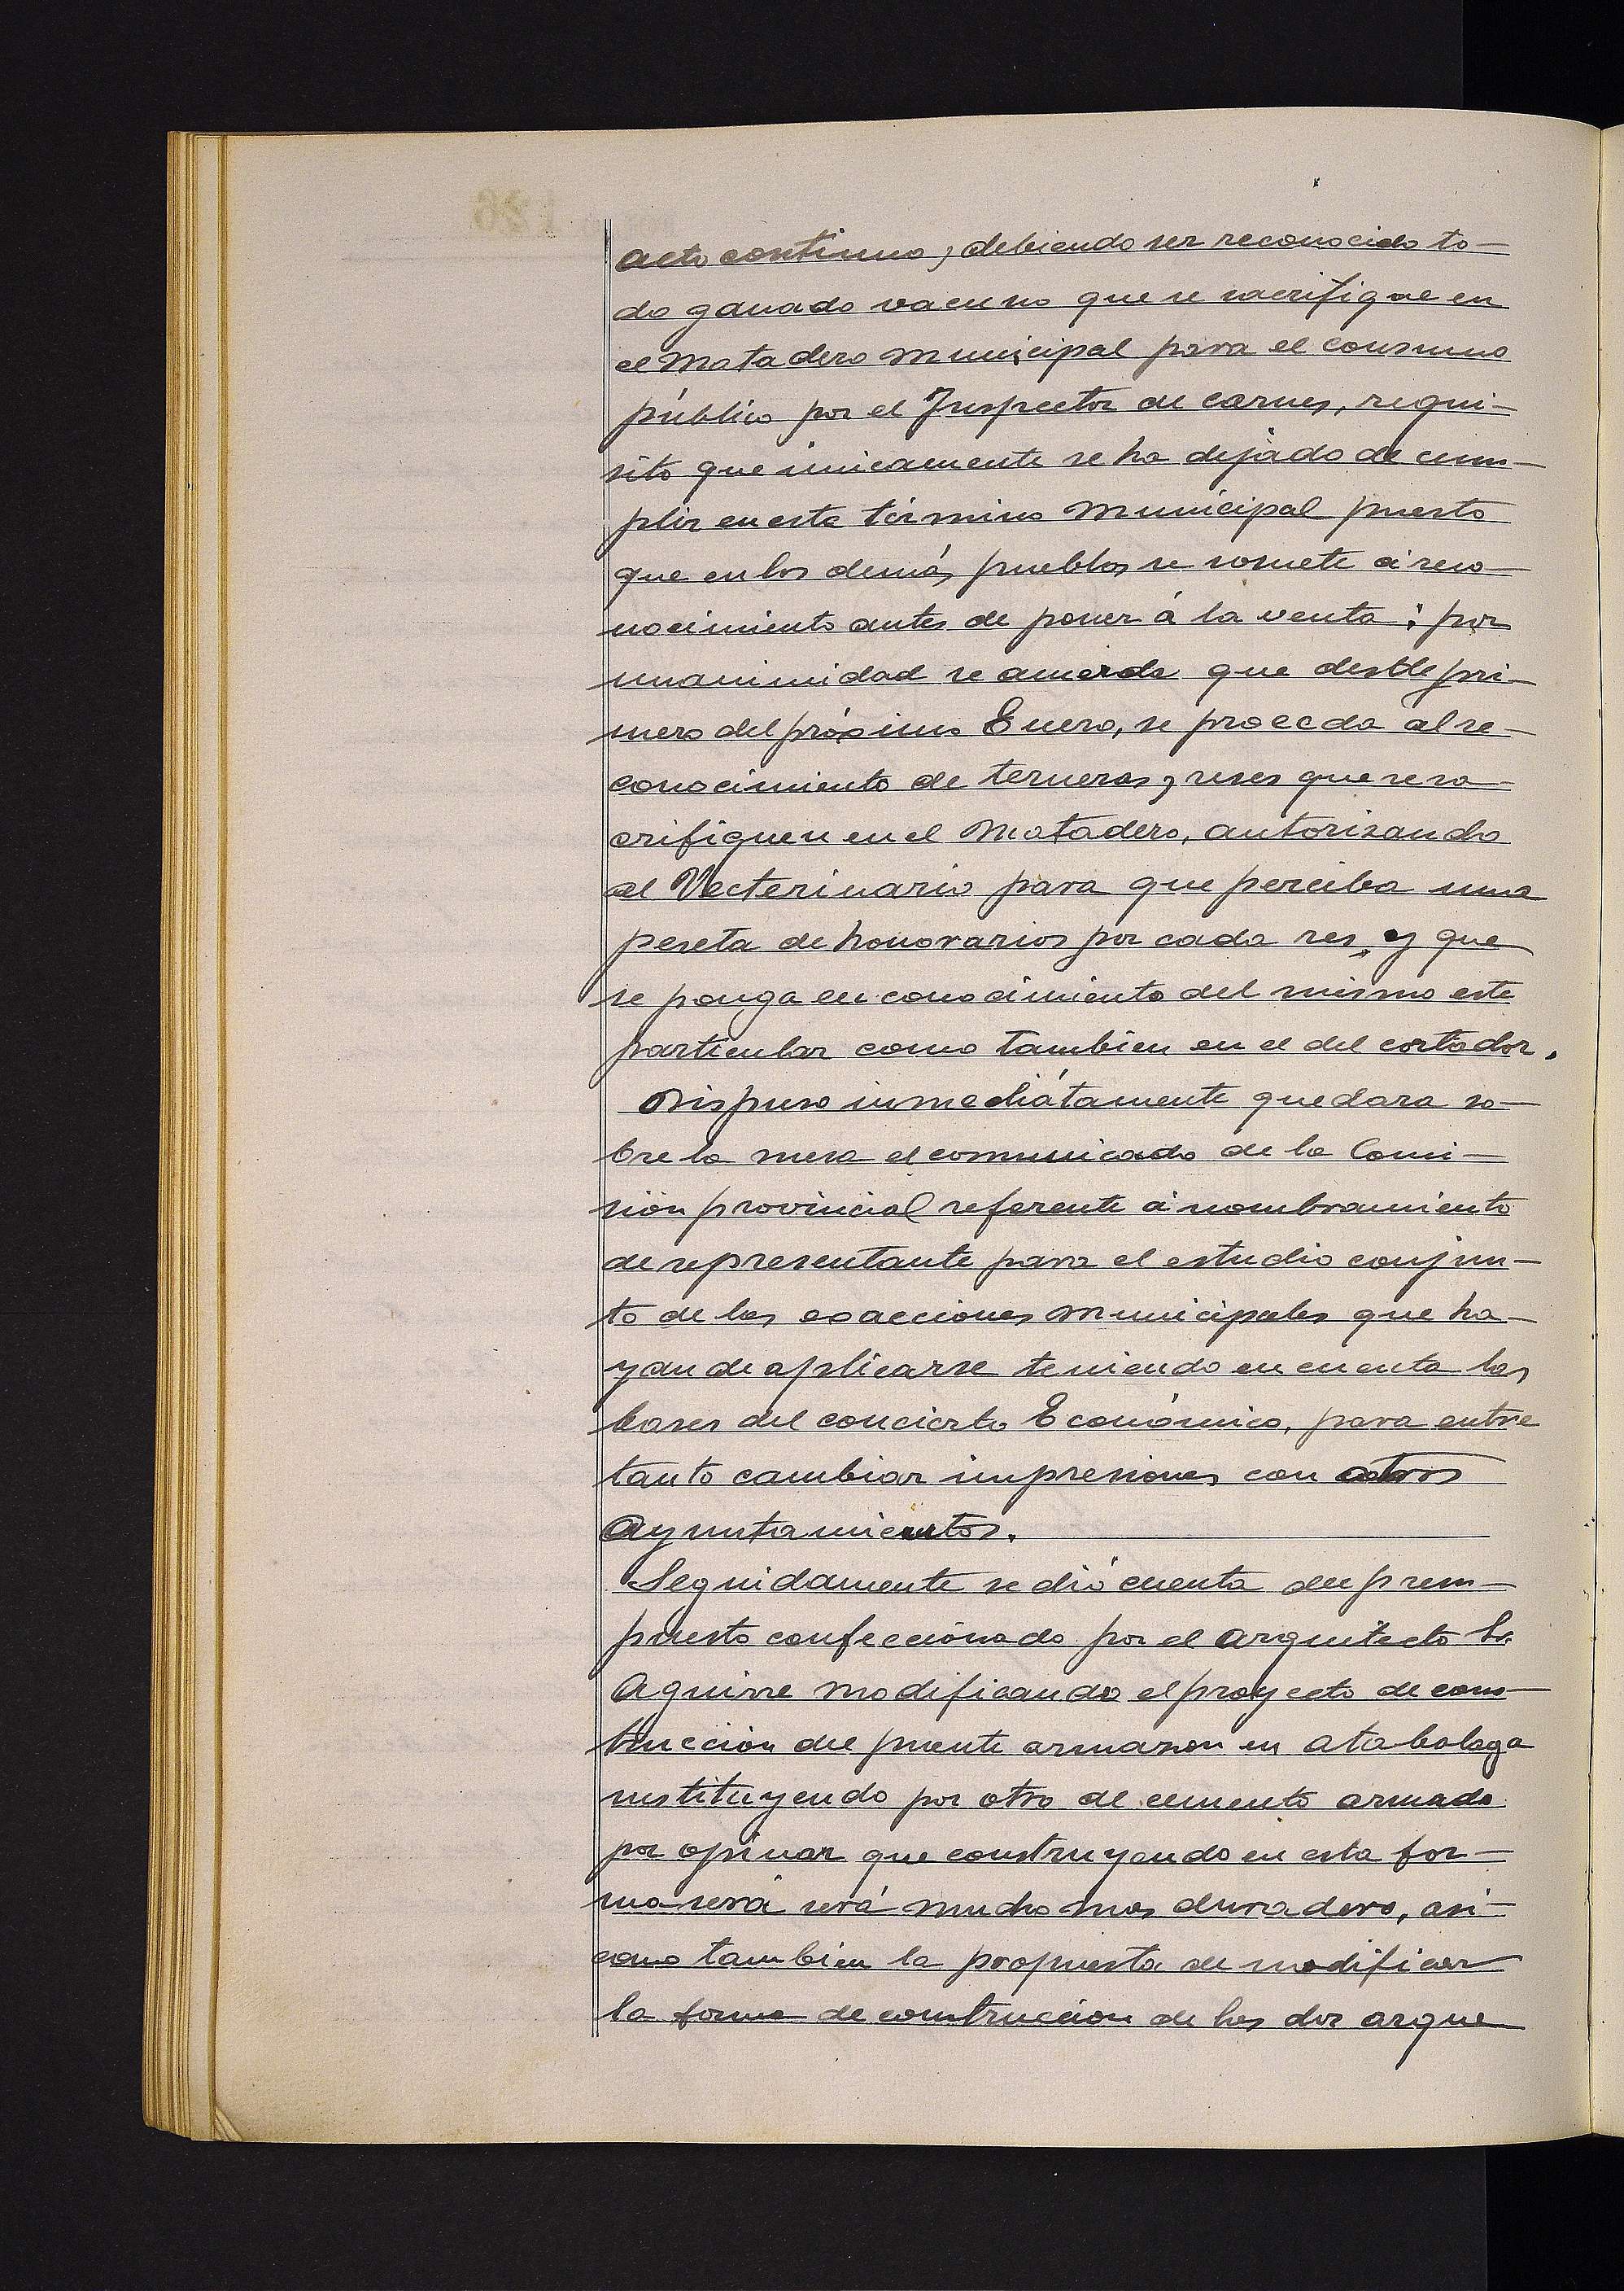 acto continuo, debiendo ser reconocido to-
do ganado vacuno que se sacrifique en
el Matadero Municipal para el consumo
público por el Inspector de carnes, requi-
sito que únicamente se ha dejado de cum-
plir en este término Municipal puesto
que en los demás pueblos se somete á reco-
nocimiento antes de poner á la venta: por
unanimidad se acuerda que desde pri-
mero del próximo Enero, se proceda al re-
conocimiento de terneras y reses que se sa-
crifiquen en el Matadero, autorizando
al Vecterinario para que perciba una
peseta de honorarios por cada res, y que
se ponga en conocimiento del mismo este
particular como tambien en el del cortador.
Dispuso inmediátamente quedara so-
bre la mesa el comunicado de la Comi-
sión provincial referente á nombramiento
de representante para el estudio conjun-
to de las exacciones Municipales que ha-
yan de aplicarse teniendo en cuenta las
bases del concierto Económico, para entre
tanto cambiar impresiones con otros
Ayuntamientos.
Seguidamente se dió cuenta del presu-
puesto confeccionado por el Arquitecto Sr.
Aguirre modificando el proyecto de cons-
trucción del puente armazon en Atabalaga
sustituyendo por otro de cemento armado
por opinar que construyendo en esta for-
ma será será mucho mas duradero, asi-
como tambien la propuesta de modificar
la forma de construccion de las dos arque